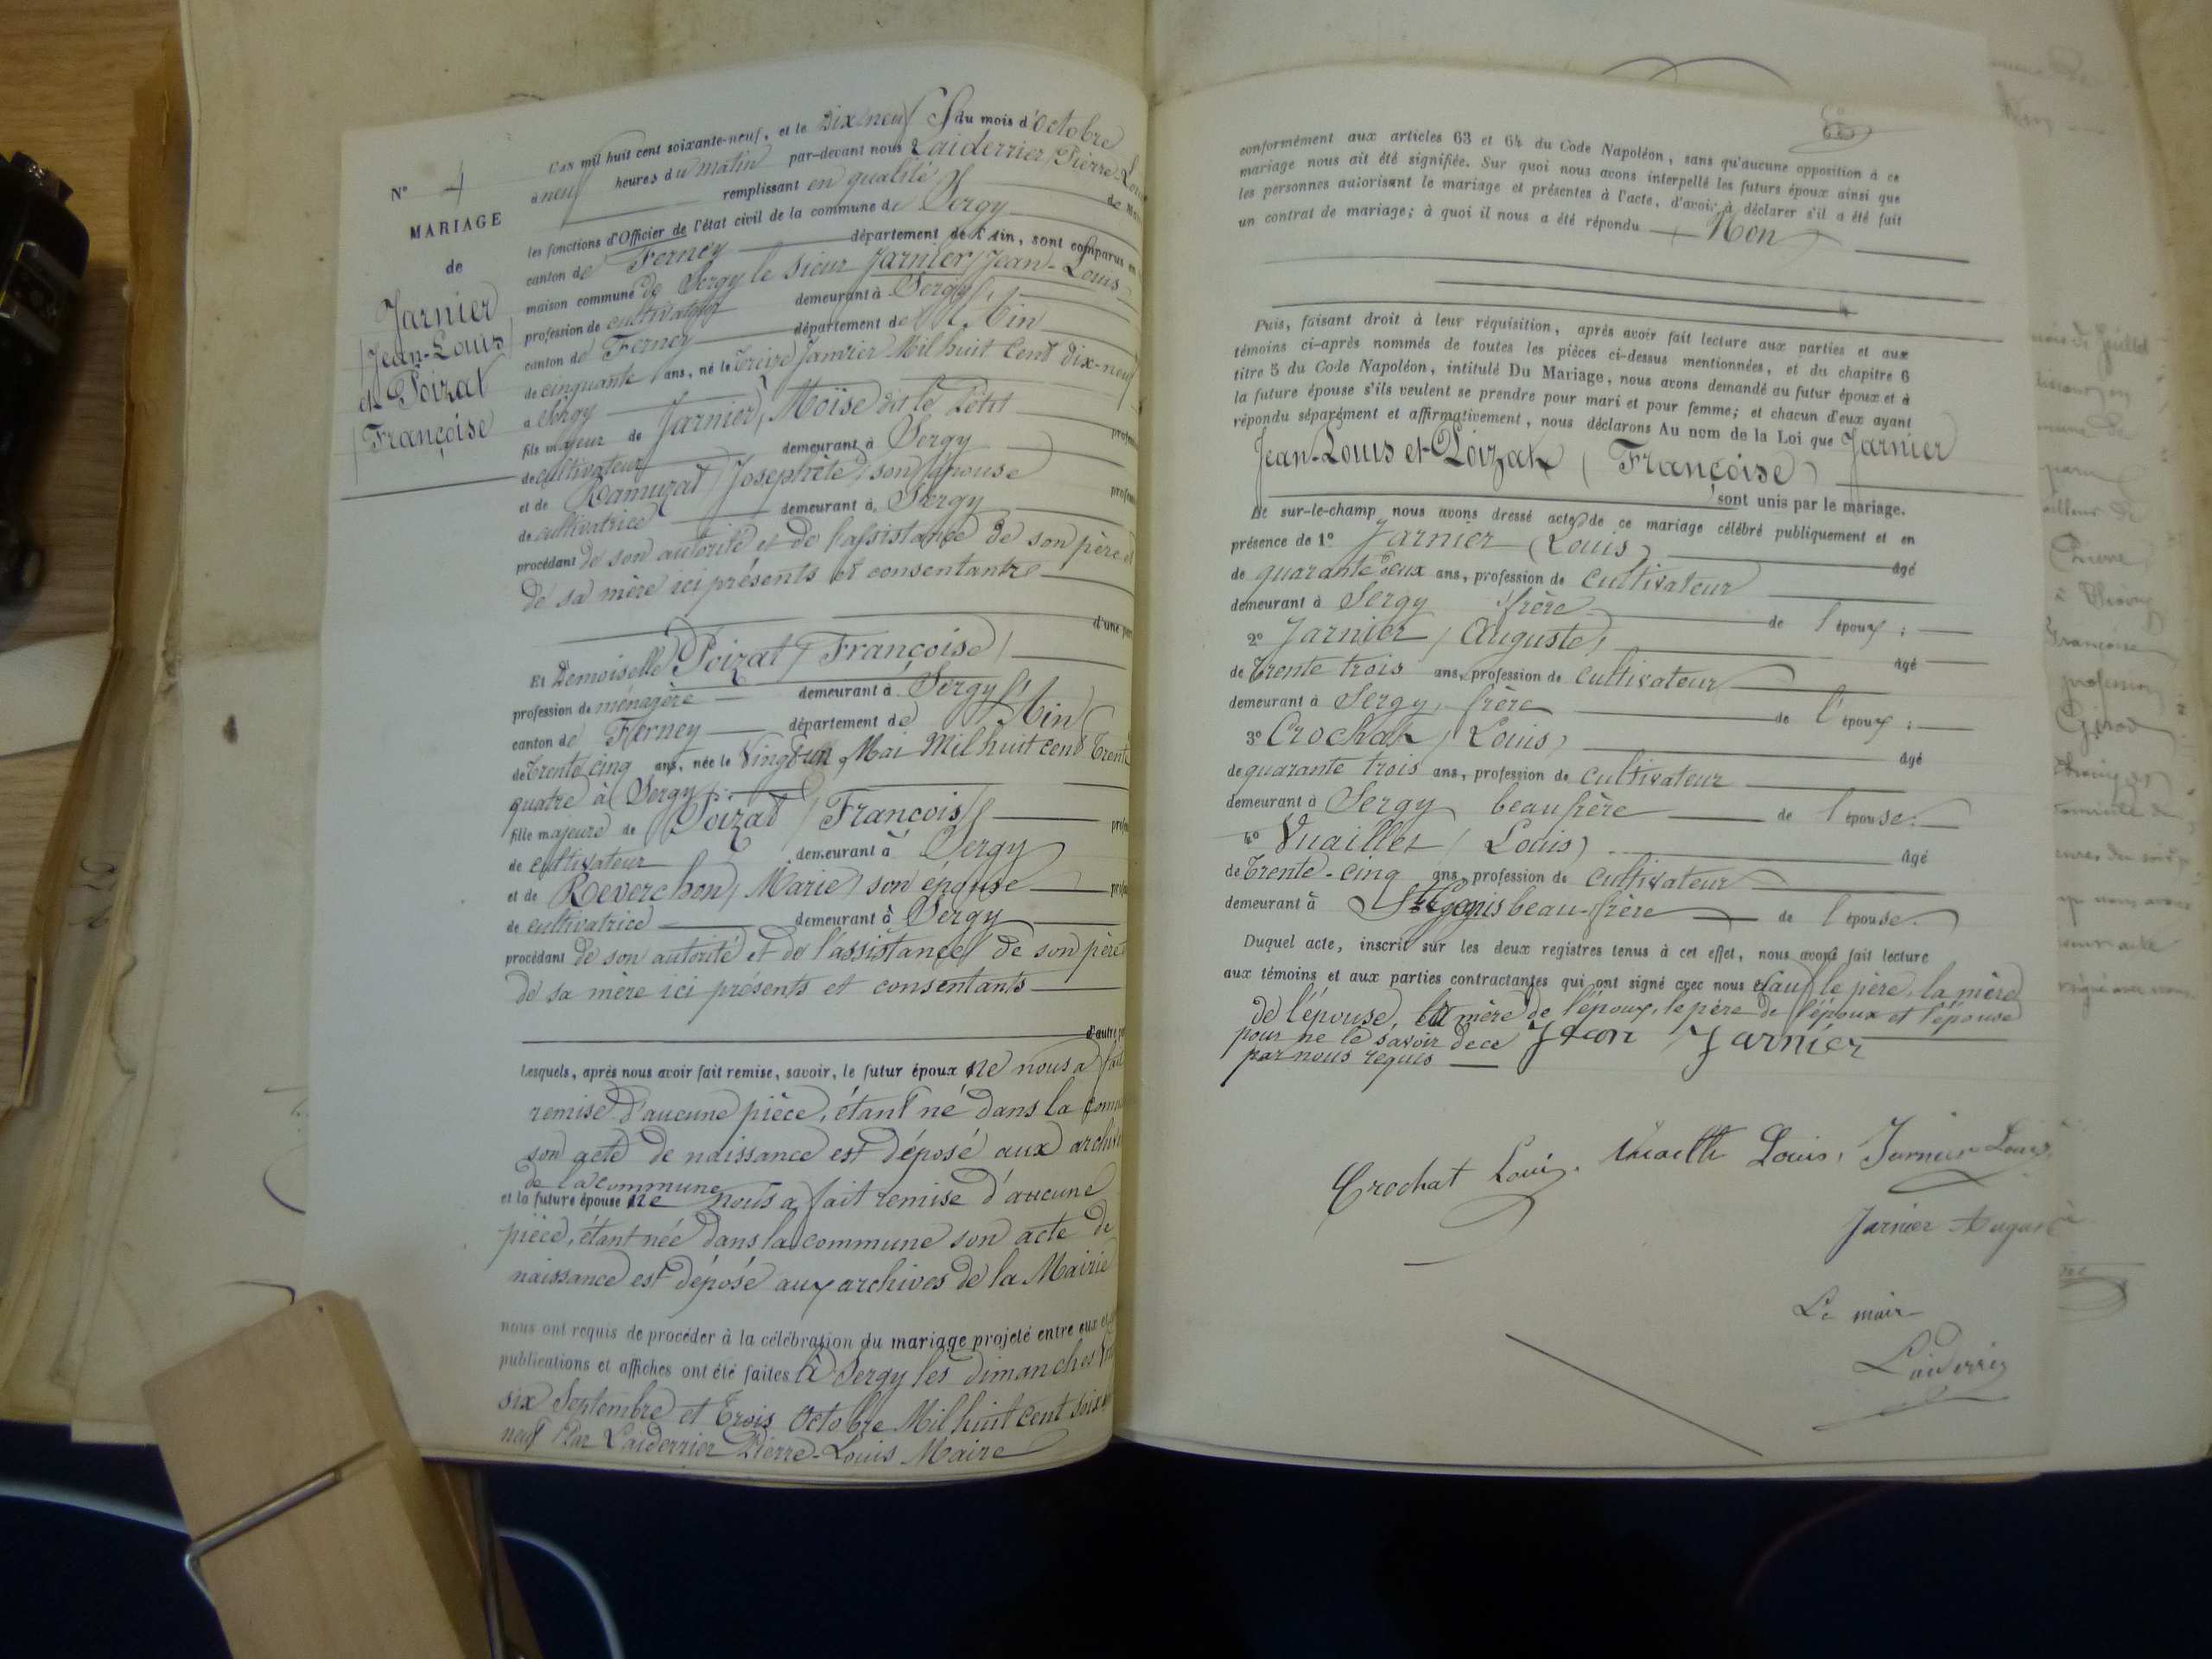 N° 4
MARIAGE
de
Jarnier
(Jean-Louis)
et Poizat
(Françoise)
L'an mil huit cent soixante-neuf, et le Dix neuf du mois d'Octobre
à neuf heures du matin par-devant nous Laiderrier (Pierre Louis
remplissant en qualité de Mai
les fonctions d'Officier de l'état civil de la commune de Sergy
canton de Ferney département de l'Ain, sont comparus en
maison commune de Sergy le sieur Jarnier (Jean-Louis
profession de cultivateur demeurant à Sergy
canton de Ferney département de l'Ain
de cinquante ans, né le Treize Janvier Mil huit Cent dix-neuf
à
fils majeur de Jarnier, Moïse dit le Petit profes
de cultivateur demeurant à Sergy
et de Ramuzat (Josephte) son épouse profes
de cultivatrice demeurant à Sergy
procédant de son autorité et de l'assistance de son père et
de sa mère ici présents et consentants
d'une par
Et Demoiselle Poizat (Françoise)
profession de ménagère demeurant à Sergy
canton de Ferney département de l'Ain
de Trente cinq ans, née le Vingt-un Mai Mil huit cent Trente
quatre à Sergy
fille majeure de Poizat (François) profes
de cultivateur demeurant à Sergy
et de Reverchon (Marie) son épouse profes
de cultivatrice demeurant à Sergy
procédant de son autorité et de l'assistance de son père
de sa mère ici présents et consentants
d'autre pa
Lesquels, après nous avoir fait remise, savoir, le futur époux ne nous a fait
remise d'aucune pièce, étant né dans la comm
son acte de naissance est déposé aux archiv
de la commune
et la future épouse ne nous a fait remise d'aucune
pièce, étant née dans la commune son acte de
naissance est déposé aux archives de la Mairie
nous ont requis de procéder à la célébration du mariage projeté entre eux et
publications et affiches ont été faites à Sergy les dimanches Vin
six Septembre et Trois Octobre Mil huit cent soixan
neuf Par Laiderrier Pierre-Louis Maire
conformément aux articles 63 et 64 du Code Napoléon, sans qu'aucune opposition à ce
mariage nous ait été signifiée. Sur quoi nous avons interpellé les futurs époux ainsi que
les personnes autorisant le mariage et présentes à l'acte, d'avoir à déclarer s'il a été fait
un contrat de mariage; à quoi il nous a été répondu Non
Puis, faisant droit à leur réquisition, après avoir fait lecture aux parties et aux
témoins ci-après nommés de toutes les pièces ci-dessus mentionnées, et du chapitre 6
titre 5 du Code Napoléon, intitulé Du Mariage, nous avons demandé au futur époux et à
la future épouse s'ils veulent se prendre pour mari et pour femme; et chacun d'eux ayant
répondu séparément et affirmativement, nous déclarons Au nom de la Loi que Jarnier
Jean-Louis et Poizat (Françoise)
sont unis par le mariage.
De sur-le-champ nous avons dressé acte de ce mariage célébré publiquement et en
présence de 1° Jarnier (Louis) âgé
de quarante deux ans, profession de cultivateur
demeurant à Sergy frère de l'époux;
2° Jarnier (Auguste) âgé
de trente trois ans, profession de cultivateur
demeurant à Sergy, frère de l'époux;
3° Crochat (Louis) âgé
de quarante trois ans, profession de cultivateur
demeurant à Sergy beau frère de l'épouse.
4° Vuaillet (Louis) âgé
de Trente-cinq ans, profession de cultivateur
demeurant à St Genis beau-frère de l'épouse.
Duquel acte, inscrit sur les deux registres tenus à cet effet, nous avons fait lecture
aux témoins et aux parties contractantes qui ont signé avec nous sauf le père, la mère
de l'épouse, la mère de l'époux, le père de l'époux et l'épouse
pour ne le savoir de ce Jean Jarnier
par nous requis
Crochat Louis. Vuaillet Louis. Jarnier Louis
Jarnier Auguste
Le maire
Laiderrier